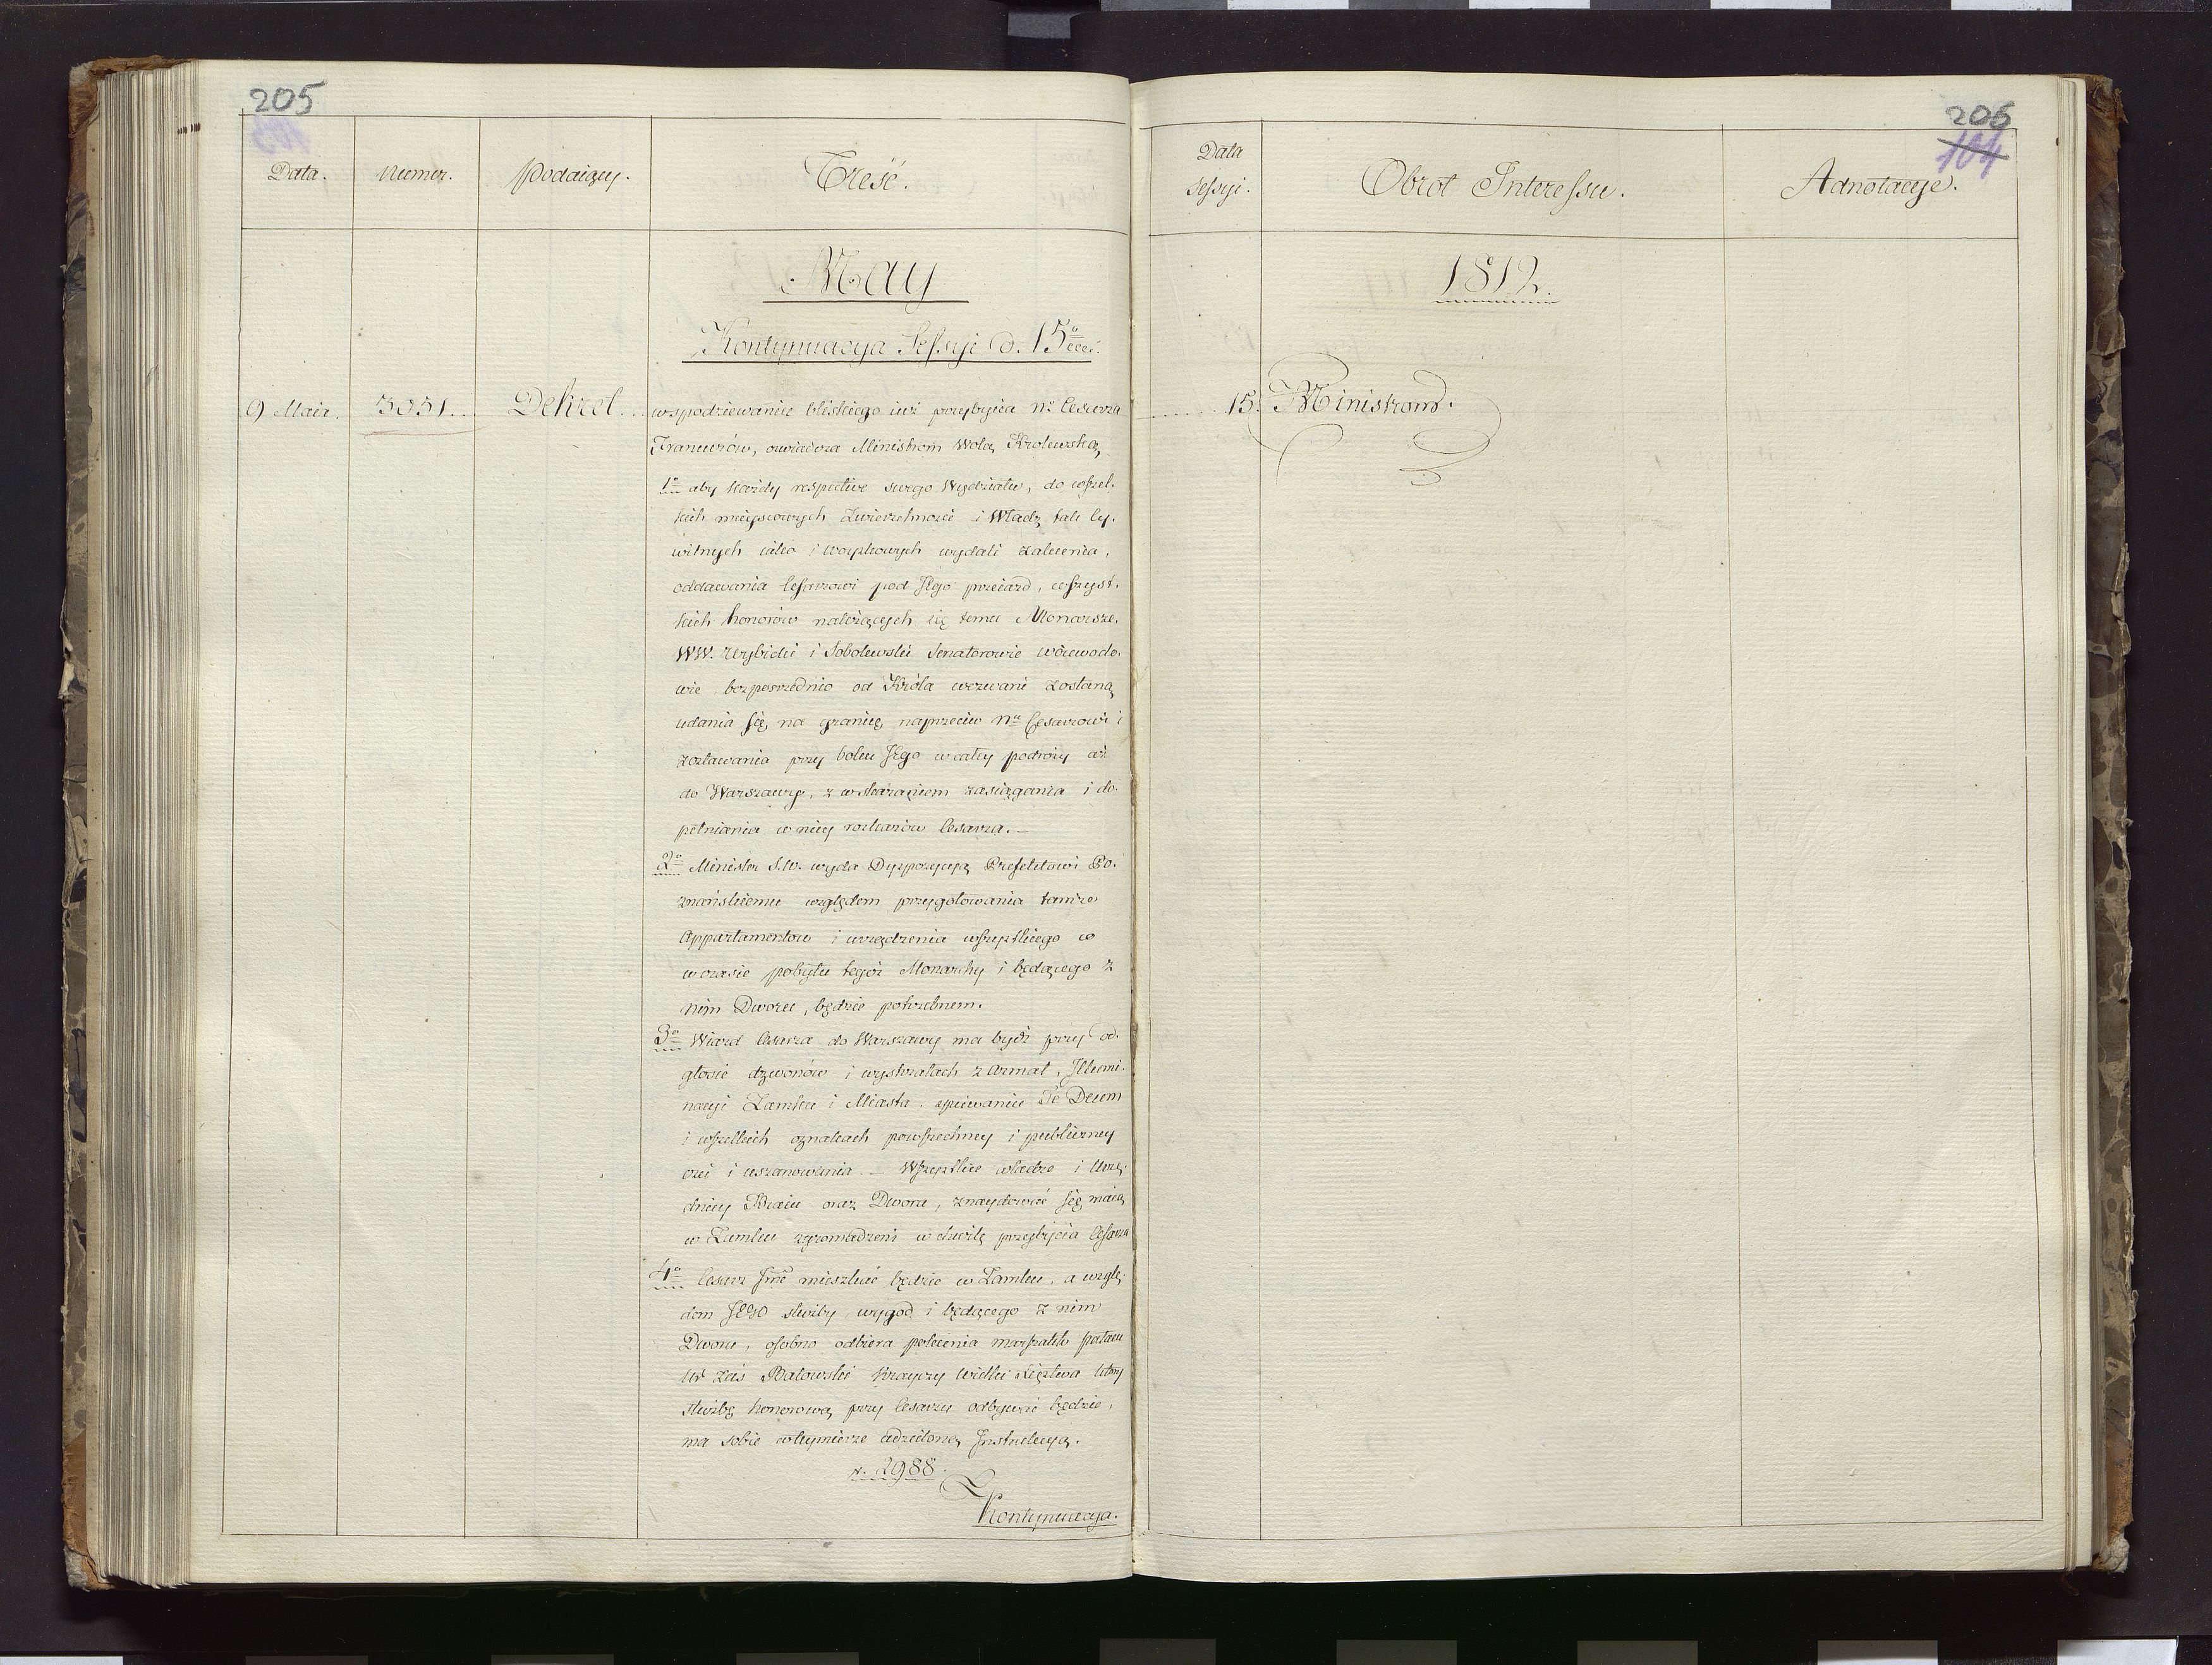 205
Data.
Numer.
Podaiący.
Treść.
May
Kontynuacya Sessyi d. 15
9 Maia.
3031.
Dekret.
wspodziewaniu bliskiego iuż przybycia Nº Cesarza
Francuzów, oswiadcza Ministrom Wolą Krolewską,
1º aby każdy respective swego Wydziału, do wszel-
kich mieyscowych Zwierzchności i Władz tak Cy-
wilnych iako i woyskowych wydali zalecenia,
oddawania Cesarzowi pod Jego przeiazd, wszyst-
kich honorów należących się temu Monarsze.
WW. Wybicki i Sobolewski Senatorowie woiewodo-
wie bezposrzednio od Króla wezwani zostaną
udania się na granicę naprzeciw Nu Cesarzowi i
zostawania przy boku Jego w całey podroży aż
do Warszawy, z wskazaniem zasiągania i do-
pełniania w niey rozkazów Cesarza. —
2º Minister S.W. wyda Dyspozycyą Prefektowi Po-
znańskiemu względem przygotowania tamże
Appartamentow i urządzenia wszystkiego co
w czasie pobytu tegoż Monarchy i będącego z
nim Dworu, będzie potrzebnem.
3º Wiazd Cesarza do Warszawy ma bydź przy od-
głosie dzwonów i wystrzałach z Armat, Jllumi-
nacyi Zamku i Miasta, spiewaniu Te Deum
i wszelkich oznakach powszechney i publiczney
czci i uszanowania. — Wszystkie władze i Urzę-
dnicy Kraiu oraz Dworu, znaydować się maią
w Zamku zgromadzeni w chwilę przybycia Cesarza
4º Cesarz Jmć mieszkać będzie w Zamku, a wzglę-
dem JEGO służby wygod i będącego z nim
Dworu, osobno odbiera polecenia marszałek pałacu
Ur Zaś Batowski Krayczy Wielki Xięztwa który
służbę honorową przy Cesarzu odbywać będzie,
ma sobie wteymierze udzieloną Jnstrukcyą.
N. 2988.
Kontynuacya.
206
104
Data
Sessyi.
Obrot Interessu.
Adnotacye.
1812.
15. Ministrom.